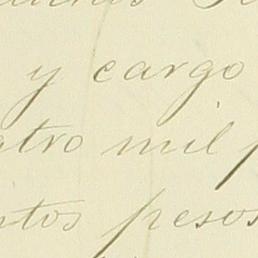 y cargo
atro mil p
ntos pesos